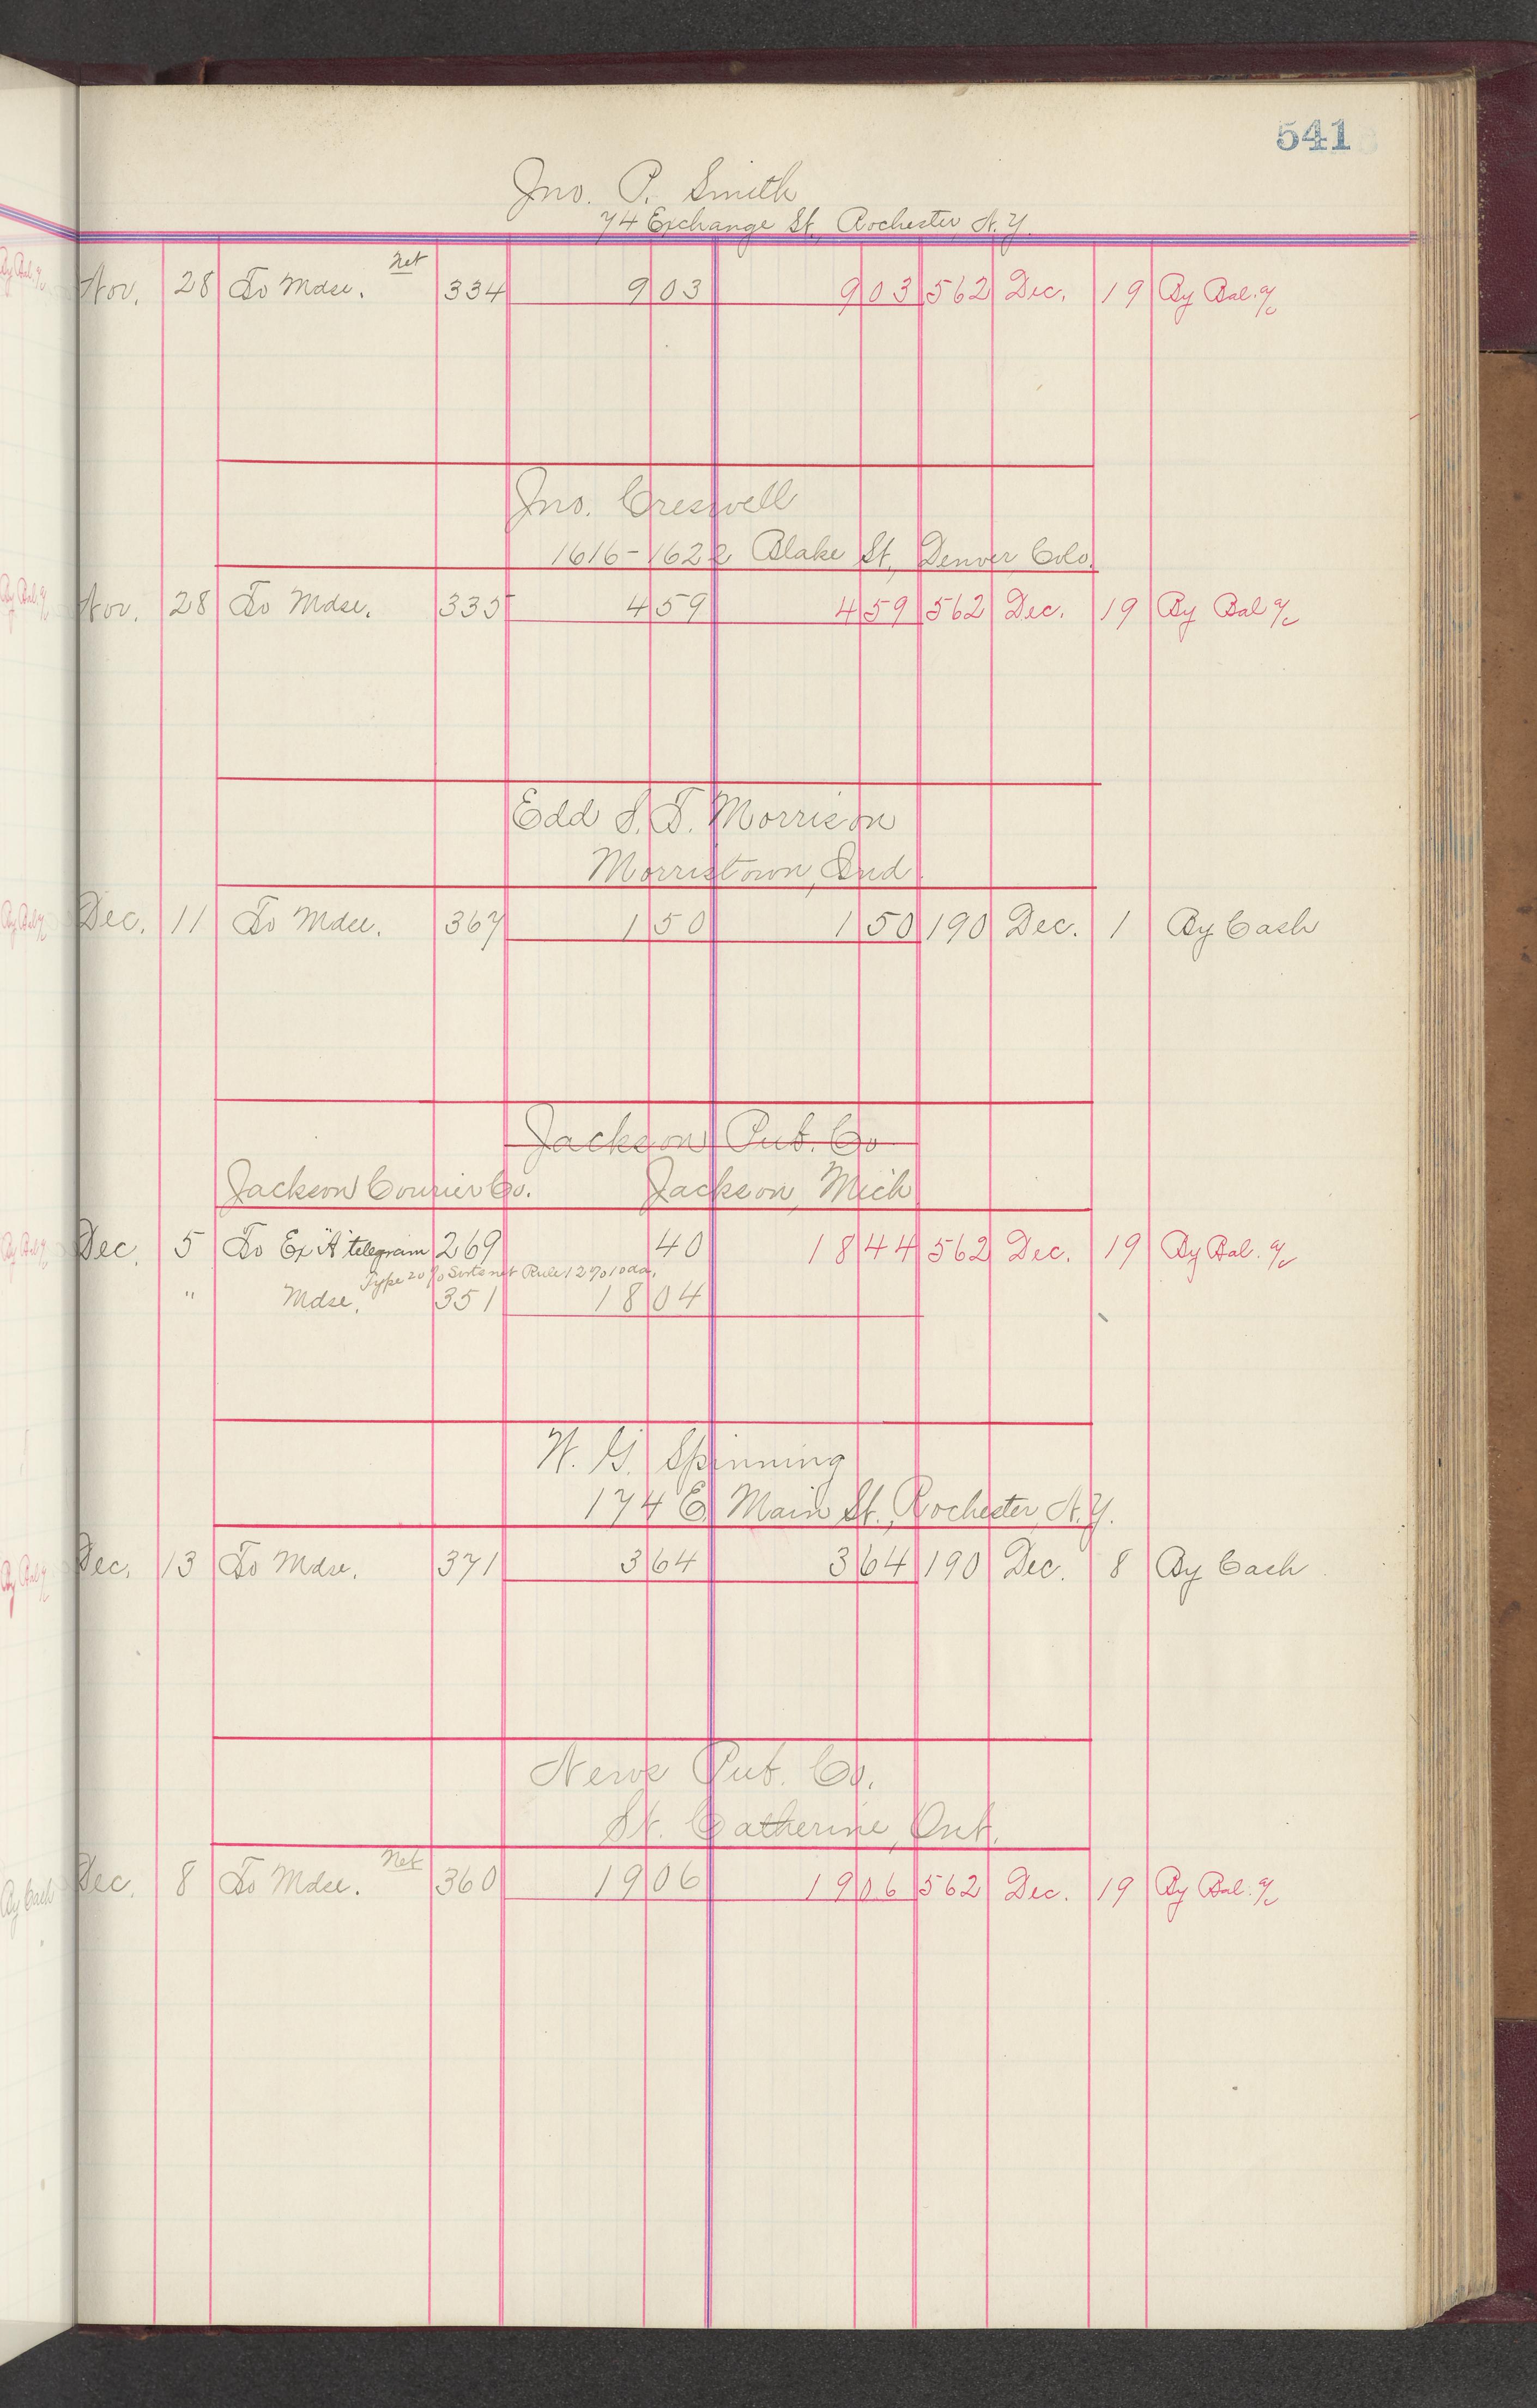 541
Jno. P. Smith
74 Exchange St., Rochester, N.Y.
Net
Nov. 28 To Mdse. 334 9 03 9 03 562 Dec. 19 By Bal. a/c
Jno. Creswell
1616-1622 Blake St., Denver Colo.
Nov. 28 To Mdse. 335 4 59 4 59 562 Dec. 19 By Bal a/c
Edd S. T. Morrison
Morristown, Ind.
Dec. 11 To Mdse. 367 1 50 1 50 190 Dec. 1 By Cash
Jackson Pub. Co
Jackson Courier Co. Jackson, Mich
Dec. 5 To Ex "A" telegram 269 40 18 44 562 Dec. 19 By Bal. a/c
Type 20% Sorts net Rule 12% 10 da.
" Mdse. 351 18 04
W. G. Spinning
174 E. Main St., Rochester, N.Y.
Dec. 13 To Mdse. 371 3 64 3 64 190 Dec. 8 By Cash
News Pub. Co.
St. Catherine, Ont.
Net
Dec. 8 To Mdse. 360 19 06 19 06 562 Dec. 19 By Bal. a/c
By Cash